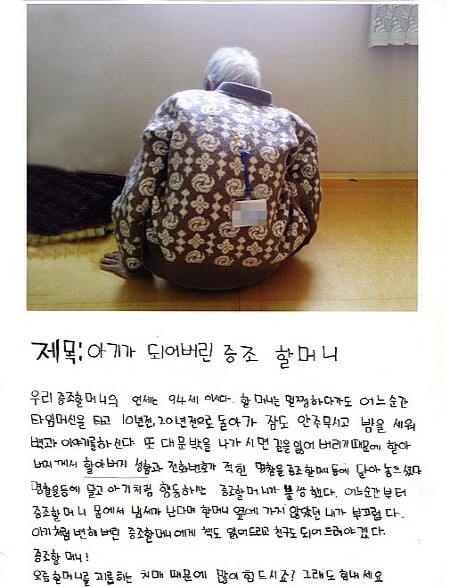 제목: 아기가 되어버린 증조 할머니
우리 증조할머니의 연세는 94세 이시다. 할머니는 멀쩡하다가도 어느순간
타임머신을 타고 10년전, 20년전으로 돌아가 잠도 안주무시고 밤을 세워
벽과 이야기를 하신다. 또 대문밖을 나가시면 길을 잃어 버리기 때문에 할아
버지께서 할아버지 성함과 전화번호가 적힌 명찰을 증조할머니 등에 달아 놓으셨다
명찰을 등에 달고 아기처럼 행동하는 증조할머니가 불쌍했다. 어느순간부터
증조할머니 몸에서 냄새가 난다며 할머니 옆에 가지 않았던 내가 부끄럽다.
아기처럼 변해버린 증조할머니에게 책도 읽어드리고 친구도 되어 드려야겠다.
증조할머니!
요즘 할머니를 괴롭히는 치매 때문에 많이 힘드시죠? 그래도 힘내세요